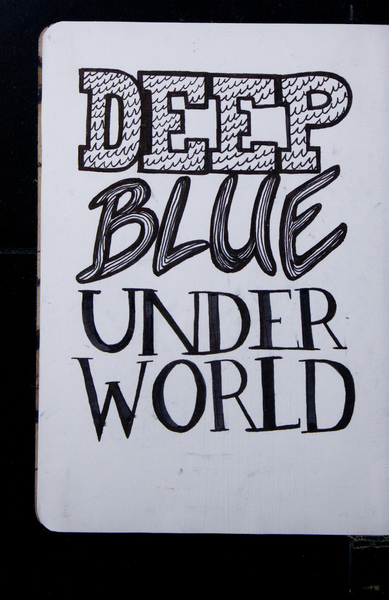 DEEP
BLUE
UNDER
WORLD